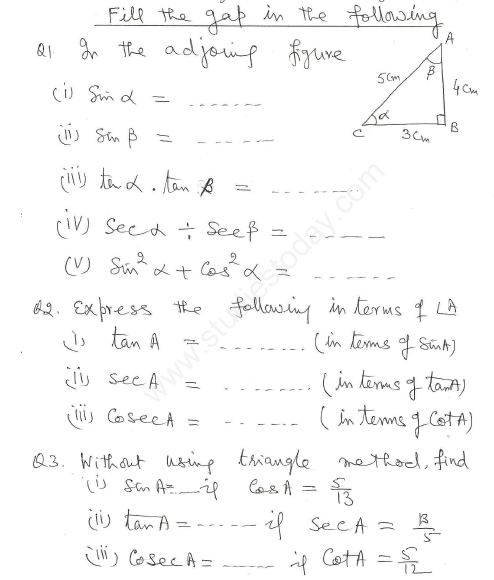 Fill the gap in the following
Q1 In the adjoing figure
A
5cm
β
4cm
α
C
3cm
B
(i) Sin α = ------
(ii) Sin β = -----
(iii) tan α . tan β = -------
(iv) Sec α ÷ Sec β = -----
(v) Sin² α + Cos² α = ------
Q2. Express the following in terms of ∠A
(i) tan A = -------- (in terms of Sin A)
(ii) sec A = -------- (in terms of tan A)
(iii) Cosec A = ------ (in terms of Cot A)
Q3. Without using triangle method, find
(i) Sin A = -- if Cos A = 5/13
(ii) tan A = ----- if sec A = 13/5
(iii) Cosec A = ----- if Cot A = 5/12
www.studiestoday.com